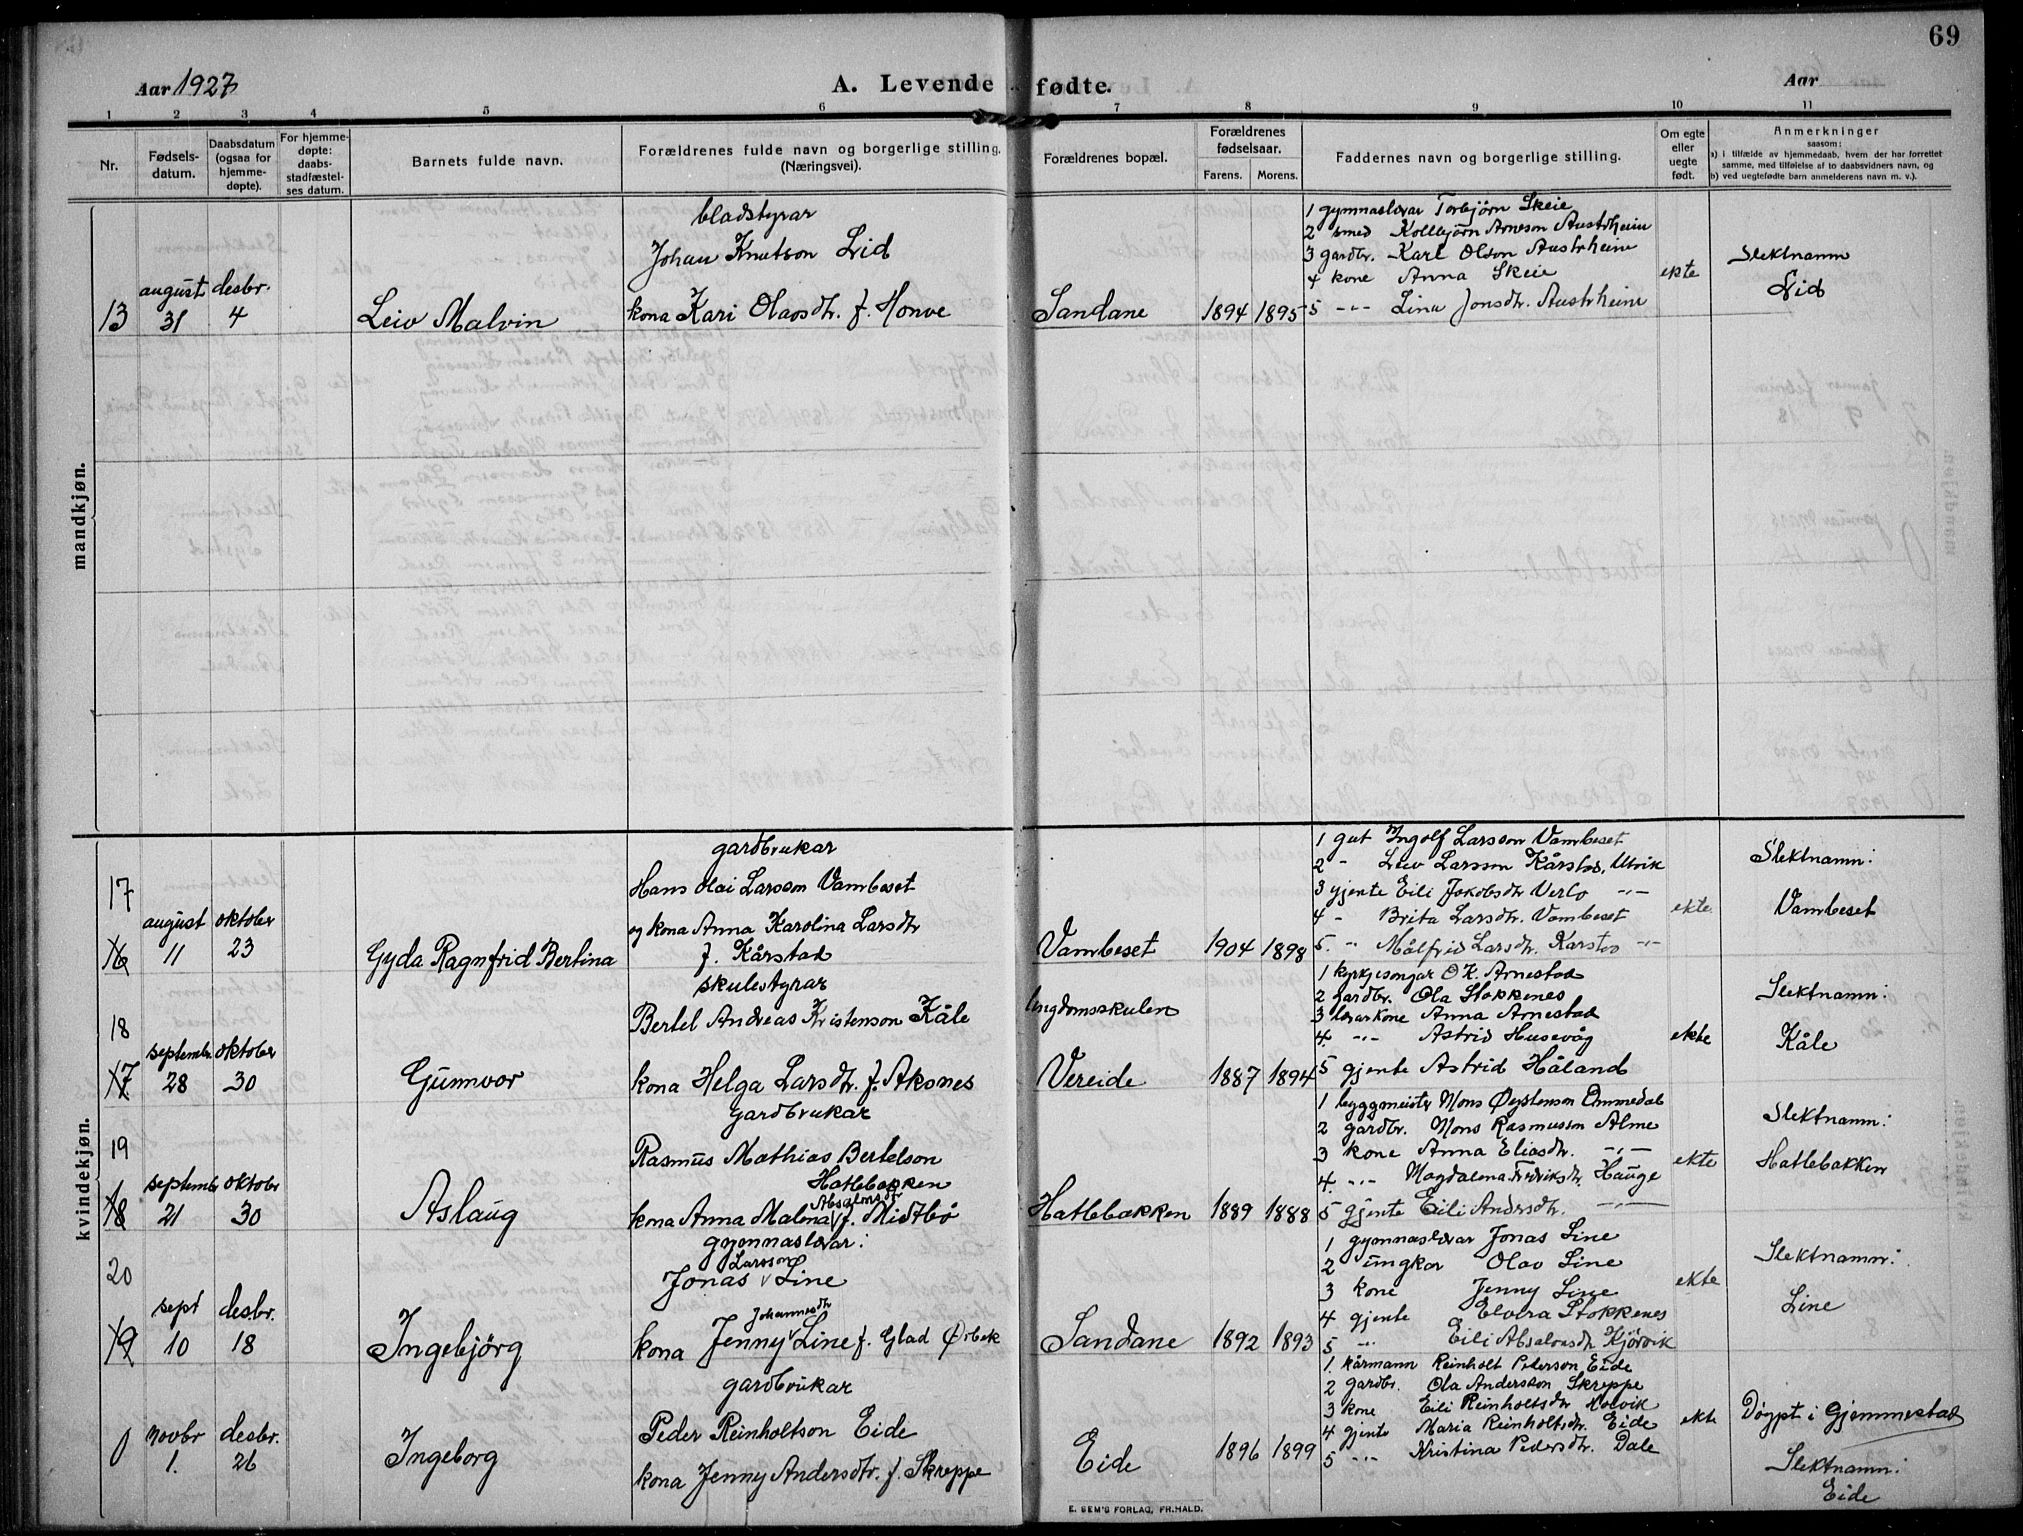 69
Aar 1927
A. Levende fødte.
Aar
1 2 3 4 5 6 7 8 9 10 11
Nr.
Fødsels-
datum.
Daabsdatum
(ogsaa for
hjemme-
døpte).
For hjemme-
døpte:
daabs-
stadfæstel-
ses datum.
Barnets fulde navn.
Forældrenes fulde navn og borgerlige stilling.
(Næringsvei).
Forældrenes bopæl.
Forældrenes
fødselsaar.
Farens. Morens.
Faddernes navn og borgerlige stilling.
Om egte
eller
uegte
født.
Anmerkninger
saasom:
a) i tilfælde av hjemmedaab, hvem der har forrettet
samme, med tilføielse af to daabsvidners navn, og
b) ved uegtefødte barn anmelderens navn m. v.).
mandkjøn.
13
august
31
desbr.
4
Leiv Malvin
bladstyrar
Johan Knutson Lid
kona Kari Olavsdtr. f. Honve
Sandane
1894 1895
1 gymnaslærar Torbjörn Skeie
2 smed Kolbjörn Arneson Austrheim
3 gardbr. Karl Olson Austrheim
4 kone Anna Skeie
5 -"- Lina Jonsdtr. Austrheim
ekte
Slektnamn
Lid
kvindekjøn.
17
16
august
11
oktober
23
Gyda Ragnfrid Bertina
gardbrukar
Hans Olai Larsson Vambeset
og kona Anna Karolina Larsdtr
f. Kårstad
Vambeset
1904 1898
1 gut Ingolf Larsson Vambeset
2 " Leiv Larsson Kårstad, Utvik
3 gjente Eili Jakobsdtr Verlo -"-
4 " Brita Larsdtr. Vambeset
5. " Målfrid Larsdtr. Karstad -"-
ekte
Slektnamn:
Vambeset
18
17
septembr
28
oktober
30
Gunnvor
skulestyrar
Bertel Andreas Kristenson Kåle
kona Helga Larsdtr. f. Aksnes
Ungdomsskulen
Vereide
1887 1894
1 kyrkjesongar O K. Arnestad
2 gardbr. Ola Stokkenes
3 lærarkone Anna Arnestad
4. -"- Astrid Husevåg
5 gjente Astrid Håland
ekte
Slektnamn:
Kåle
19
18
septembr
21
oktobr
30
Aslaug
gardbrukar
Rasmus Mathias Bertelson
Hatlebakken
Absalmsdtr
kona Anna Malina f. Midtbö
Hatlebakken
1889 1888
1 byggmeister Mons Øystenson Ommedal
2 gardbr. Mons Rasmusson Alme
3 kone Anna Eliasdtr. -"-
4. -"- Magdalena Fredriksdtr. Hauge
5 gjente Eili Andersdtr. -"-
ekte
Slektnamn:
Hatlebakken
20
19
sept
10
desbr.
18
Ingebjörg
gymnaslærar:
Larsson
Jonas Line
Johannesdtr
kona Jenny Line f. Glad Örbek
Sandane
1892 1893
1 gymnaslærar Jonas Line
2 ungkar Olav Line
3 kone Jenny Line
4 gjente Elvira Stokkenes
5 " Eili Absalonsdtr Kjörvik
ekte
Slektnamn:
Line
0
novbr
1.
desbr.
26
Ingeborg
gardbrukar
Peder Reinholtson Eide
kona Jenny Andersdtr. f. Skreppe
Eide
1896 1899
1. kårmann Reinholt Pederson Eide
2 gardbr. Ola Andersson Skreppe
3 kone Eili Reinholtsdtr Holvik
4 gjente Maria Reinholtsdtr. Eide
5 -"- Kristina Pedersdtr. Dale
ekte
Döypt i Gjemmestad
Slektnamn:
Eide
E. SEM'S FORLAG, FR.HALD.